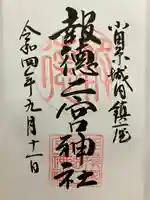 小田原城内鎮座
報徳二宮神社
令和四年九月十一日